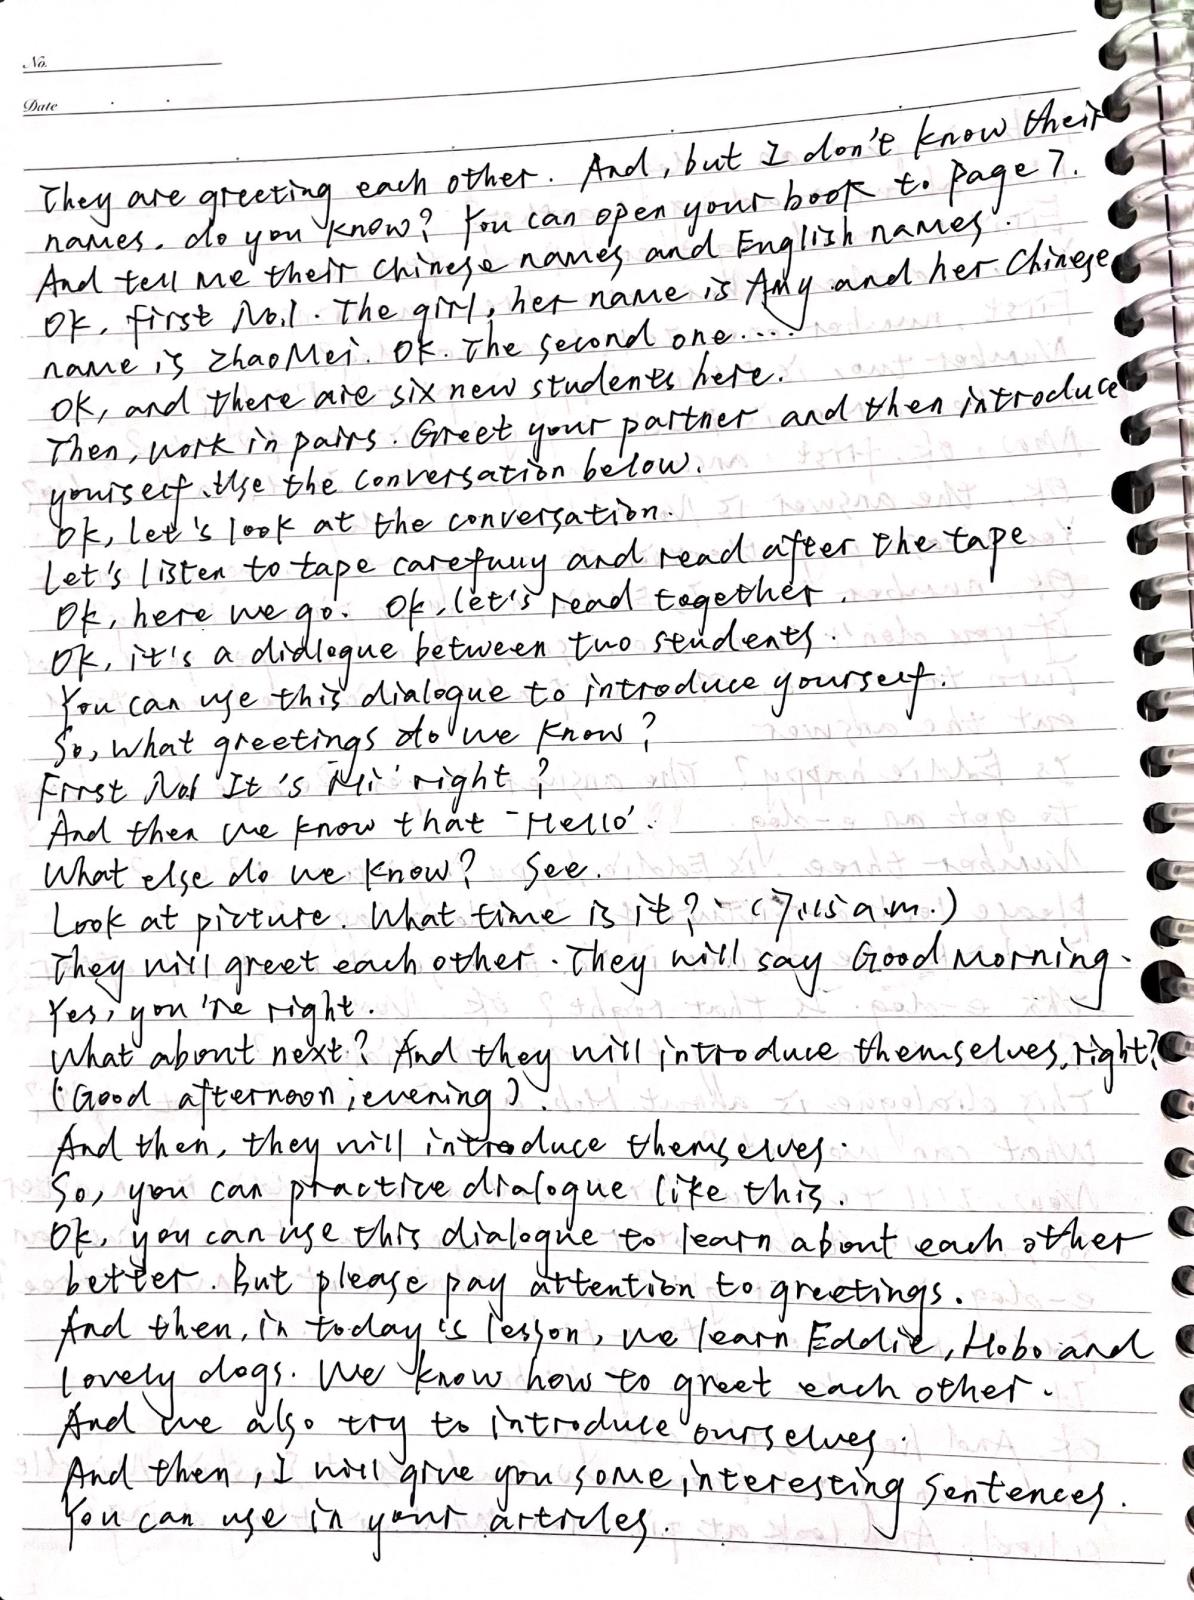 No.
Date
They are greeting each other. And, but I don't know their
names. do you know? You can open your book to page 7.
And tell me their Chinese names and English names.
Ok, first No.1. The girl, her name is Amy and her Chinese
name is Zhao Mei. Ok. The second one....
Ok, and there are six new students here.
Then, work in pairs. Greet your partner and then introduce
yourself. Use the conversation below.
Ok, let's look at the conversation.
Let's listen to tape carefully and read after the tape
Ok, here we go. Ok, let's read together.
Ok, it's a dialogue between two students.
You can use this dialogue to introduce yourself.
So, what greetings do we know?
First No1 It's 'Hi' right?
And then we know that "Hello'.
What else do we know? See.
Look at picture. What time is it? (7:15 a.m.)
They will greet each other. They will say Good Morning.
Yes, you're right.
What about next? And they will introduce themselves, right?
(Good afternoon; evening).
And then, they will introduce themselves.
So, you can practice dialogue like this.
Ok, you can use this dialogue to learn about each other
better. But please pay attention to greetings.
And then, in today's lesson, we learn Eddie, Hobo and
lovely dogs. We know how to greet each other.
And we also try to introduce ourselves.
And then, I will give you some interesting sentences.
You can use in your articles.